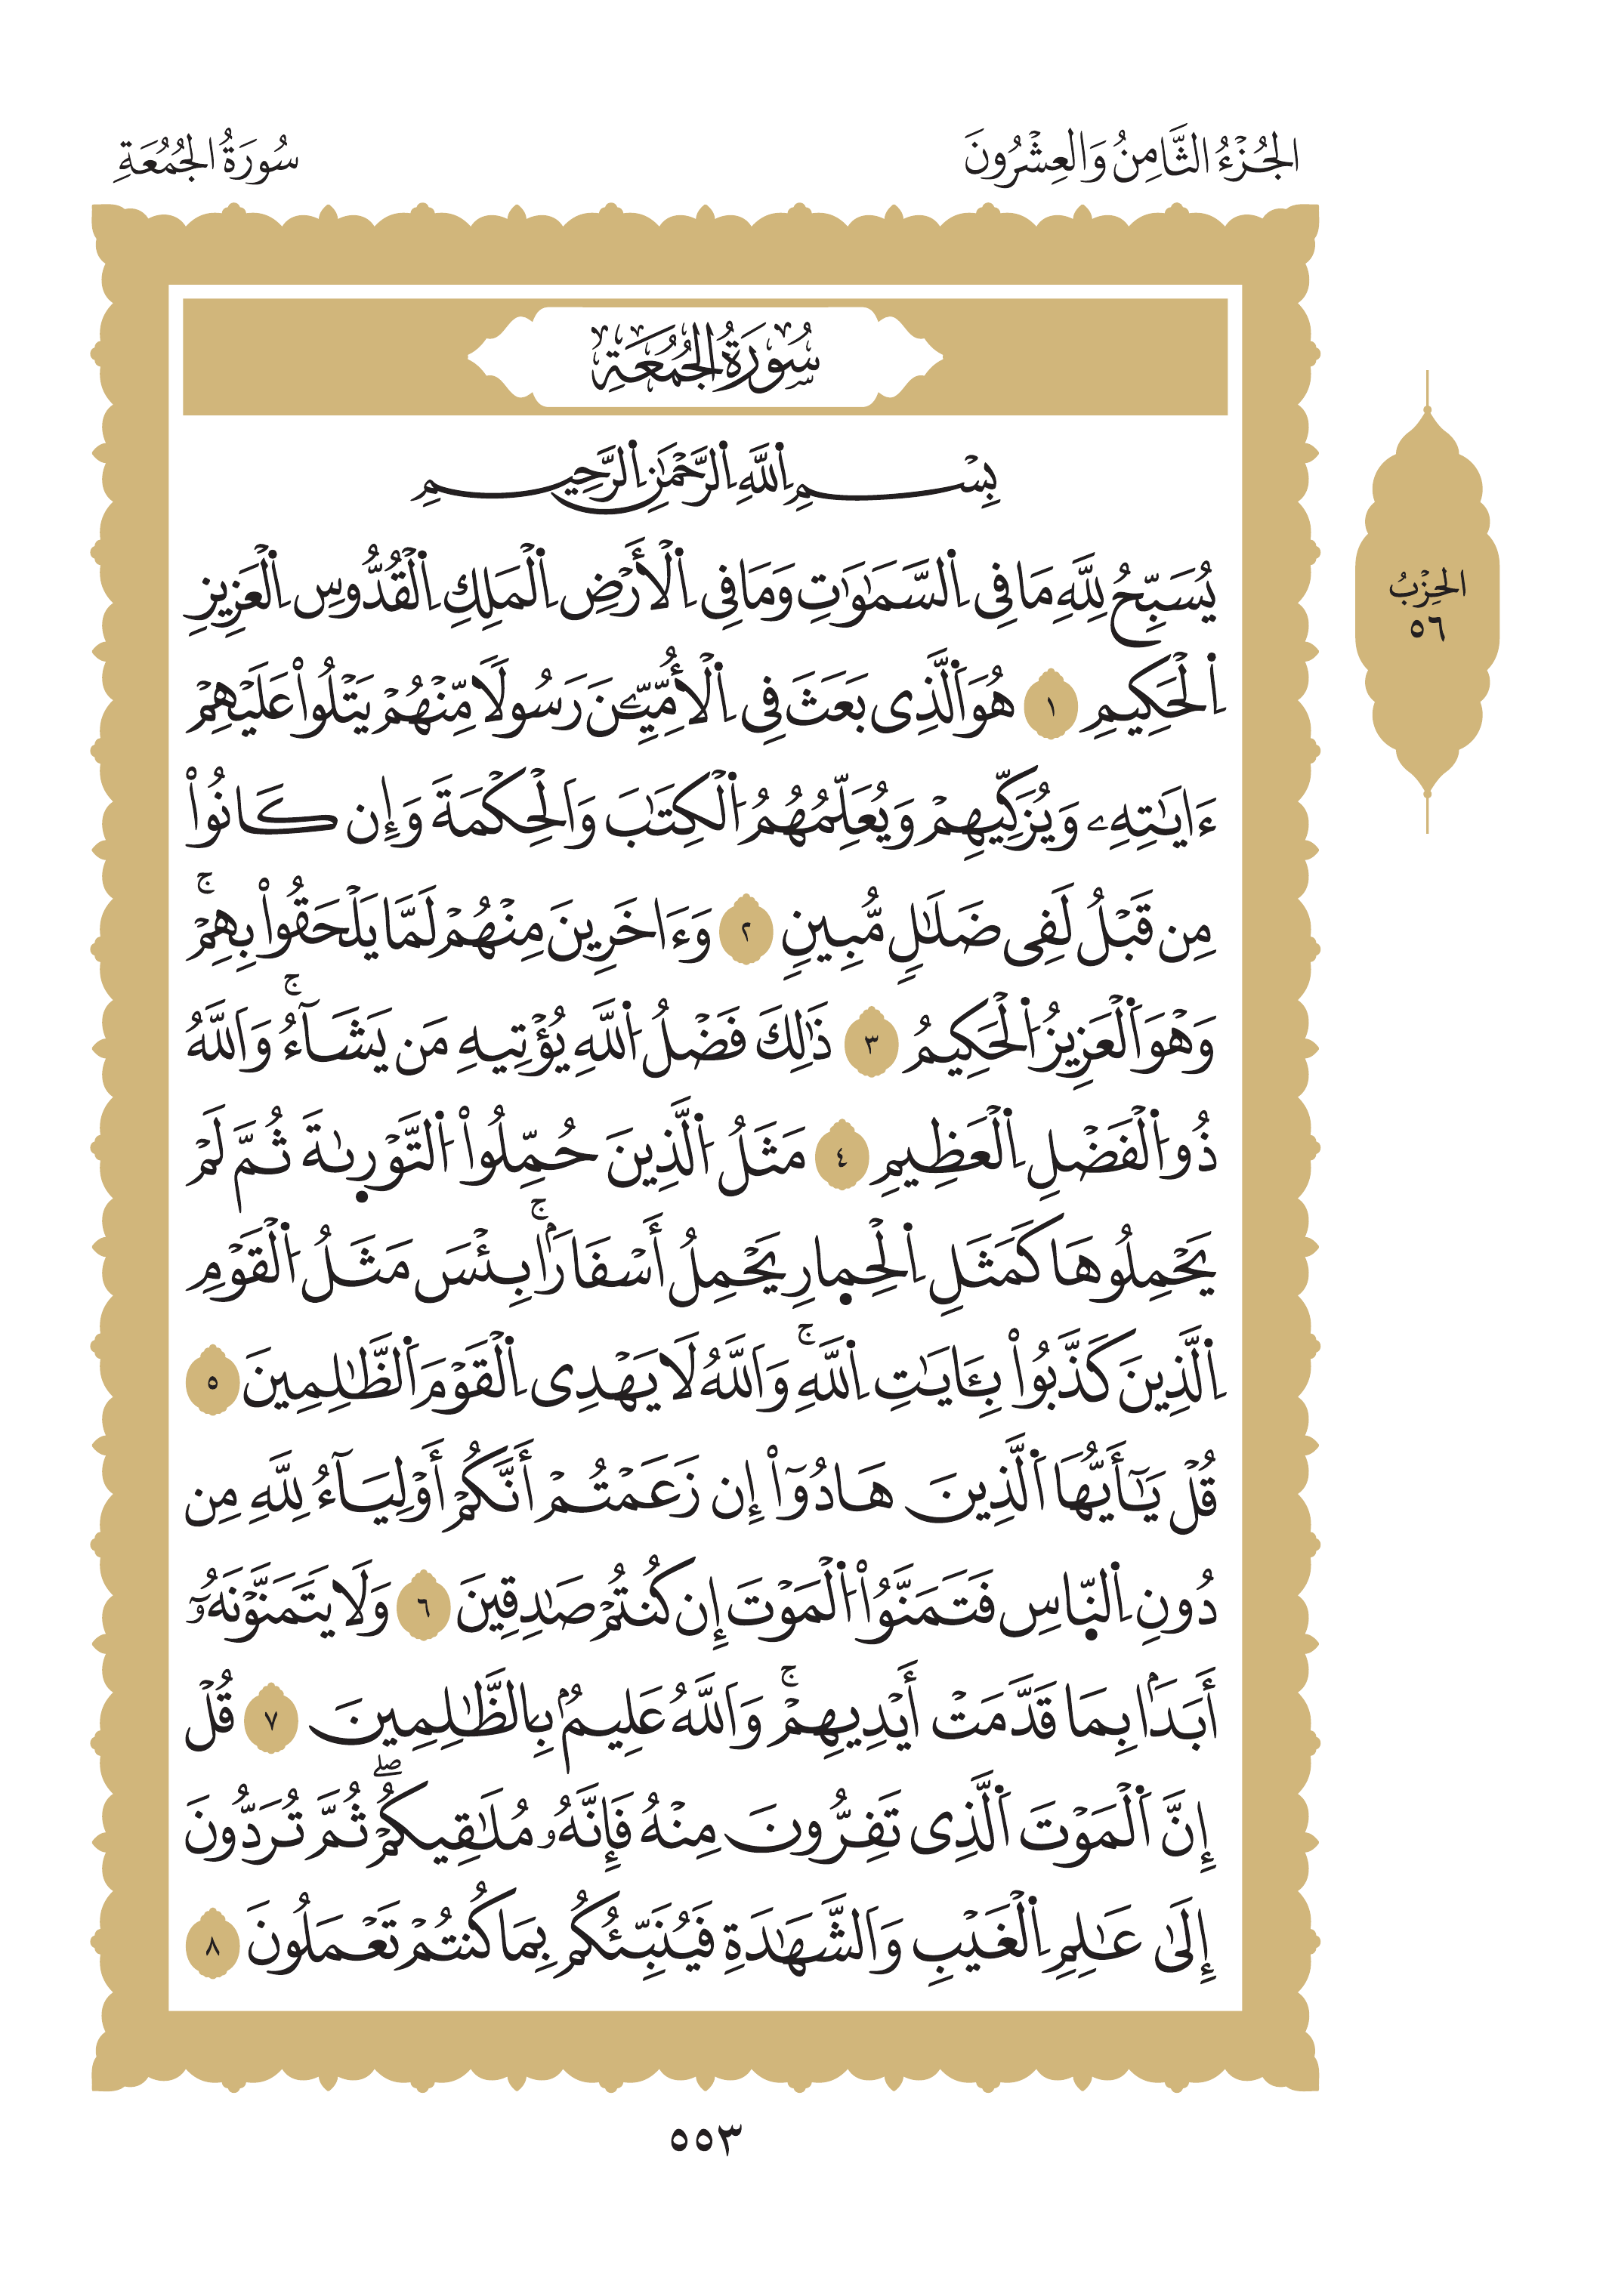 الجُزْءُ الثَّامِنُ وَالعِشْرُونَ
سُورَةُ الجُمُعَةِ
سُورَةُ الجُمُعَةِ
بِسْمِ اِ۬للَّهِ اِ۬لرَّحْمَٰنِ اِ۬لرَّحِيمِ
يُسَبِّحُ لِلَّهِ مَا فِى اِ۬لسَّمَٰوَٰتِ وَمَا فِى اِ۬لْأَرْضِ اِ۬لْمَلِكِ اِ۬لْقُدُّوسِ اِ۬لْعَزِيزِ
اِ۬لْحَكِيمِ ١ هُوَ اَ۬لَّذِى بَعَثَ فِى اِ۬لْأُمِّيِّـۧنَ رَسُولًا مِّنْهُمْ يَتْلُوا۟ عَلَيْهِمْ
ءَايَٰتِهِۦ وَيُزَكِّيهِمْ وَيُعَلِّمُهُمُ اُ۬لْكِتَٰبَ وَاَلْحِكْمَةَ وَإِن كَانُوا۟
مِن قَبْلُ لَفِى ضَلَٰلٍ مُّبِينٍ ٢ وَءَاخَرِينَ مِنْهُمْ لَمَّا يَلْحَقُوا۟ بِهِمْۚ
وَهْوَ اَ۬لْعَزِيزُ اُ۬لْحَكِيمُ ٣ ذَٰلِكَ فَضْلُ اُ۬للَّهِ يُؤْتِيهِ مَن يَشَآءُۚ وَاَللَّهُ
ذُو اُ۬لْفَضْلِ اِ۬لْعَظِيمِ ٤ مَثَلُ اُ۬لَّذِينَ حُمِّلُوا۟ اُ۬لتَّوْر۪ىٰةَ ثُمَّ لَمْ
يَحْمِلُوهَا كَمَثَلِ اِ۬لْحِم۪ارِ يَحْمِلُ أَسْفَارَۢاۚ بِئْسَ مَثَلُ اُ۬لْقَوْمِ
اِ۬لَّذِينَ كَذَّبُوا۟ بِـَٔايَٰتِ اِ۬للَّهِۚ وَاَللَّهُ لَا يَهْدِى اِ۬لْقَوْمَ اَ۬لظَّٰلِمِينَ ٥
قُلْ يَٰٓأَيُّهَا اَ۬لَّذِينَ هَادُوٓا۟ إِن زَعَمْتُمْ أَنَّكُمْ أَوْلِيَآءُ لِلَّهِ مِن
دُونِ اِ۬لنّ۪اسِ فَتَمَنَّوُا۟ اُ۬لْمَوْتَ إِن كُنتُمْ صَٰدِقِينَ ٦ وَلَا يَتَمَنَّوْنَهُۥٓ
أَبَدَۢا بِمَا قَدَّمَتْ أَيْدِيهِمْۚ وَاَللَّهُ عَلِيمُۢ بِالظَّٰلِمِينَ ٧ قُلْ
إِنَّ اَ۬لْمَوْتَ اَ۬لَّذِى تَفِرُّونَ مِنْهُ فَإِنَّهُۥ مُلَٰقِيكُمْۖ ثُمَّ تُرَدُّونَ
إِلَىٰ عَٰلِمِ اِ۬لْغَيْبِ وَاَلشَّهَٰدَةِ فَيُنَبِّئُكُم بِمَا كُنتُمْ تَعْمَلُونَ ٨
الحِزْبُ
٥٦
٥٥٣